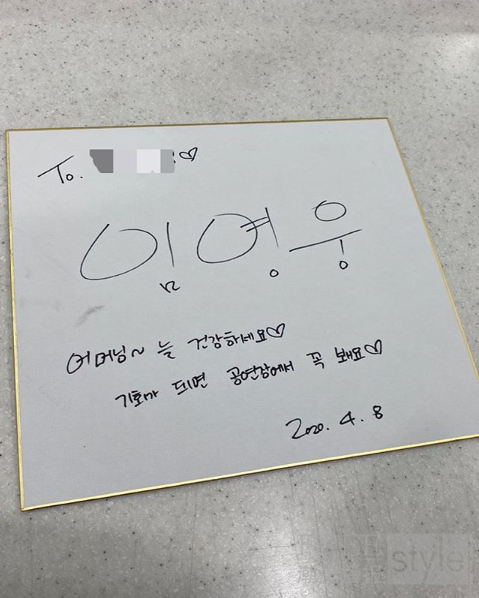 To. ♡
임영웅
어머님~ 늘 건강하세요♡
기회가 되면 공연장에서 꼭 봬요♡
2020. 4. 8
style